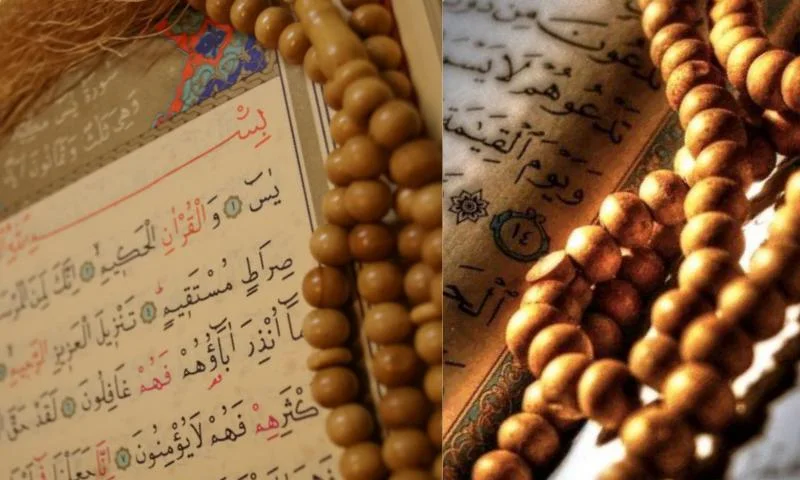 سُورَةُ
وَهِيَ ثَلٰثٌ وَثَمَانُونَ
بِسْ
يٰسٓ ١ وَالْقُرْاٰنِ الْحَكٖيمِ ٢ اِنَّكَ لَمِنَ الْمُرْسَ
صِرَاطٍ مُسْتَقٖيمٍ ٤ تَنْزٖيلَ الْعَزٖيزِ الرَّحٖيمِ
مَٓا اُنْذِرَ اٰبَٓاؤُ۬هُمْ فَهُمْ غَافِلُونَ ٦ لَقَدْ حَقَّ
كْثَرِهِمْ فَهُمْ لَا يُؤْمِنُونَ ٧ اِنَّا جَعَلْنَا
تَدْعُونَ مِنْ دُو
تَدْعُوهُمْ لَا يَسْ
وَيَوْمَ الْقِيٰمَةِ
١٤
الْحَ